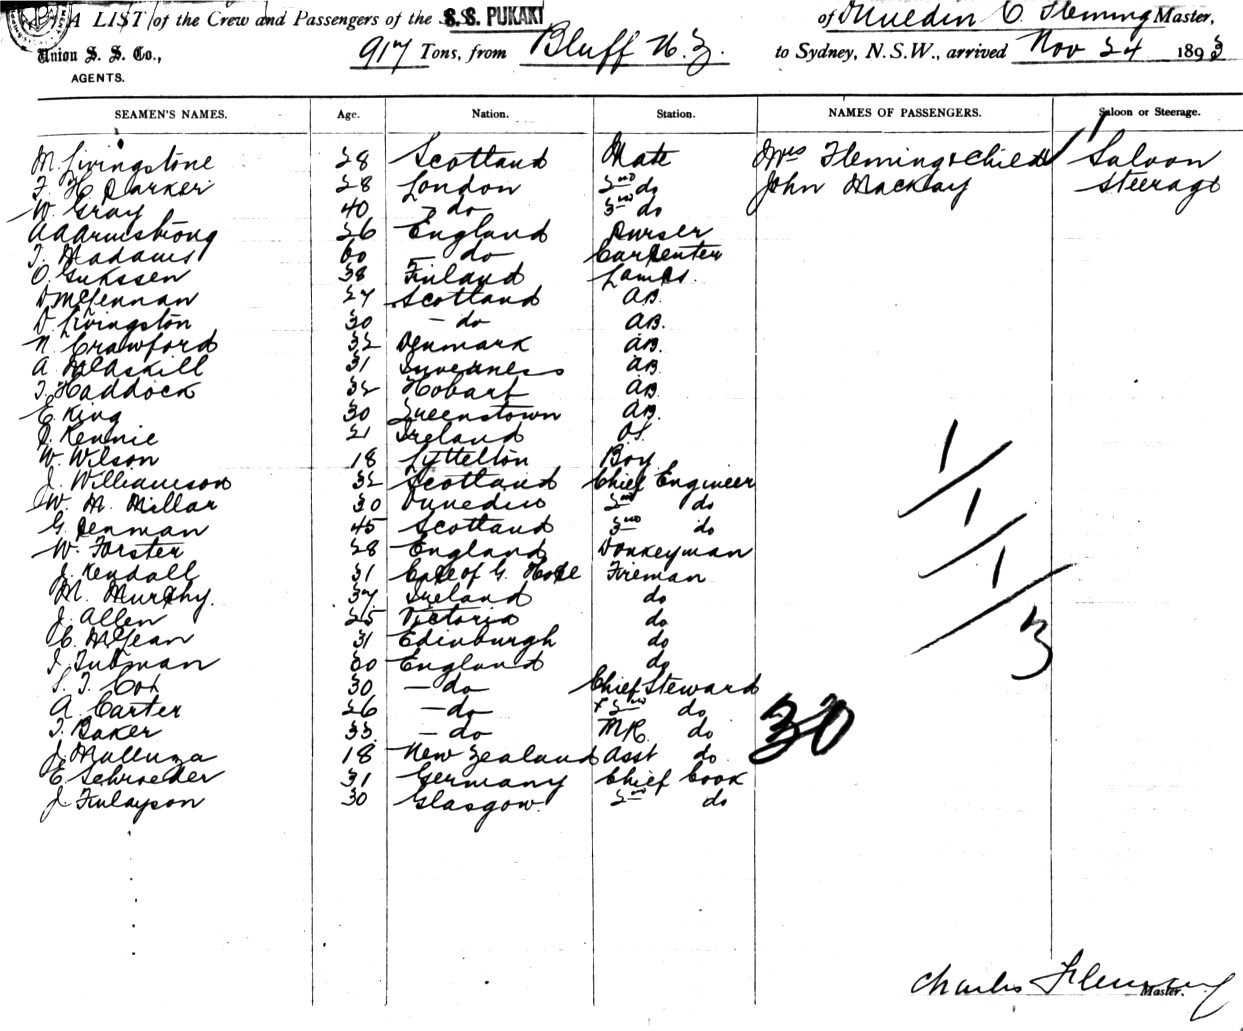 A LIST of the Crew and Passengers of the S.S. PUKAKI of Dunedin C. Fleming Master,
Union S. S. Co., 917 Tons, from Bluff N.Z. to Sydney, N.S.W., arrived Nov 24 1893
AGENTS.
SEAMEN'S NAMES. Age. Nation. Station. NAMES OF PASSENGERS. Saloon or Steerage.
M. Livingstone 28 Scotland Mate Mrs Fleming & child Saloon
F. H Parker 28 London 2nd do John Mackay Steerage
W. Gray 40 do 3rd do
A A Armstrong 26 England Purser
T. Madams 60 do Carpenter
O. 38 Finland Lamps
D McLennan 27 Scotland AB.
D. Livingston 30 - do AB.
N. Crawford 32 Denmark AB.
A. McAskill 31 Inverness AB.
T. Haddock 32 Hobart AB.
E. King 30 Queenstown AB.
J. Rennie 21 Ireland OS.
W. Wilson 18 Lyttelton Boy
J. Williamson 32 Scotland Chief Engineer
W. M. Millar 30 Dunedin 2nd do
G. Denman 45 Scotland 3rd do
W. Forster 28 England Donkeyman
J. Kendall 31 Cape of G. Hope Fireman
M. Murphy. 37 Ireland do
J. Allen 25 Victoria do
C. McLean 31 Edinburgh do
J. Tubman 60 England do
S. T. Cox 30 - do Chief Steward
A. Carter 26 - do F 2nd do
T. Baker 33 - do MR. do
J. 18 New Zealand Asst do
E. Schroeder 31 Germany Chief Cook
J Finlayson 30 Glasgow. 2nd do
1
1
1
3
30
Charles Fleming
Master.